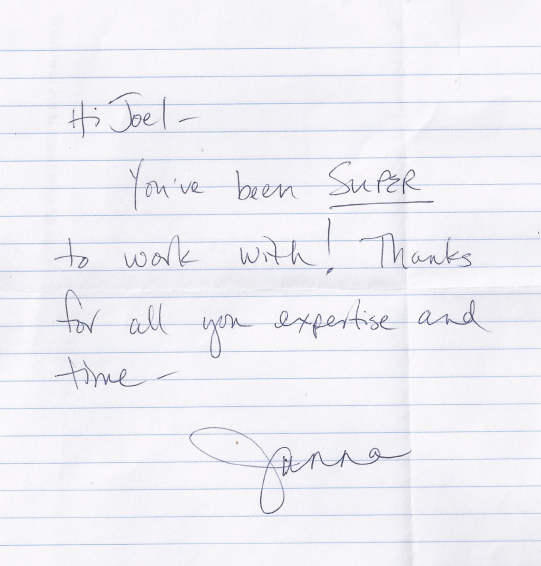 Hi Joel -
You've been SUPER
to work with! Thanks
for all you expertise and
time -
Janna